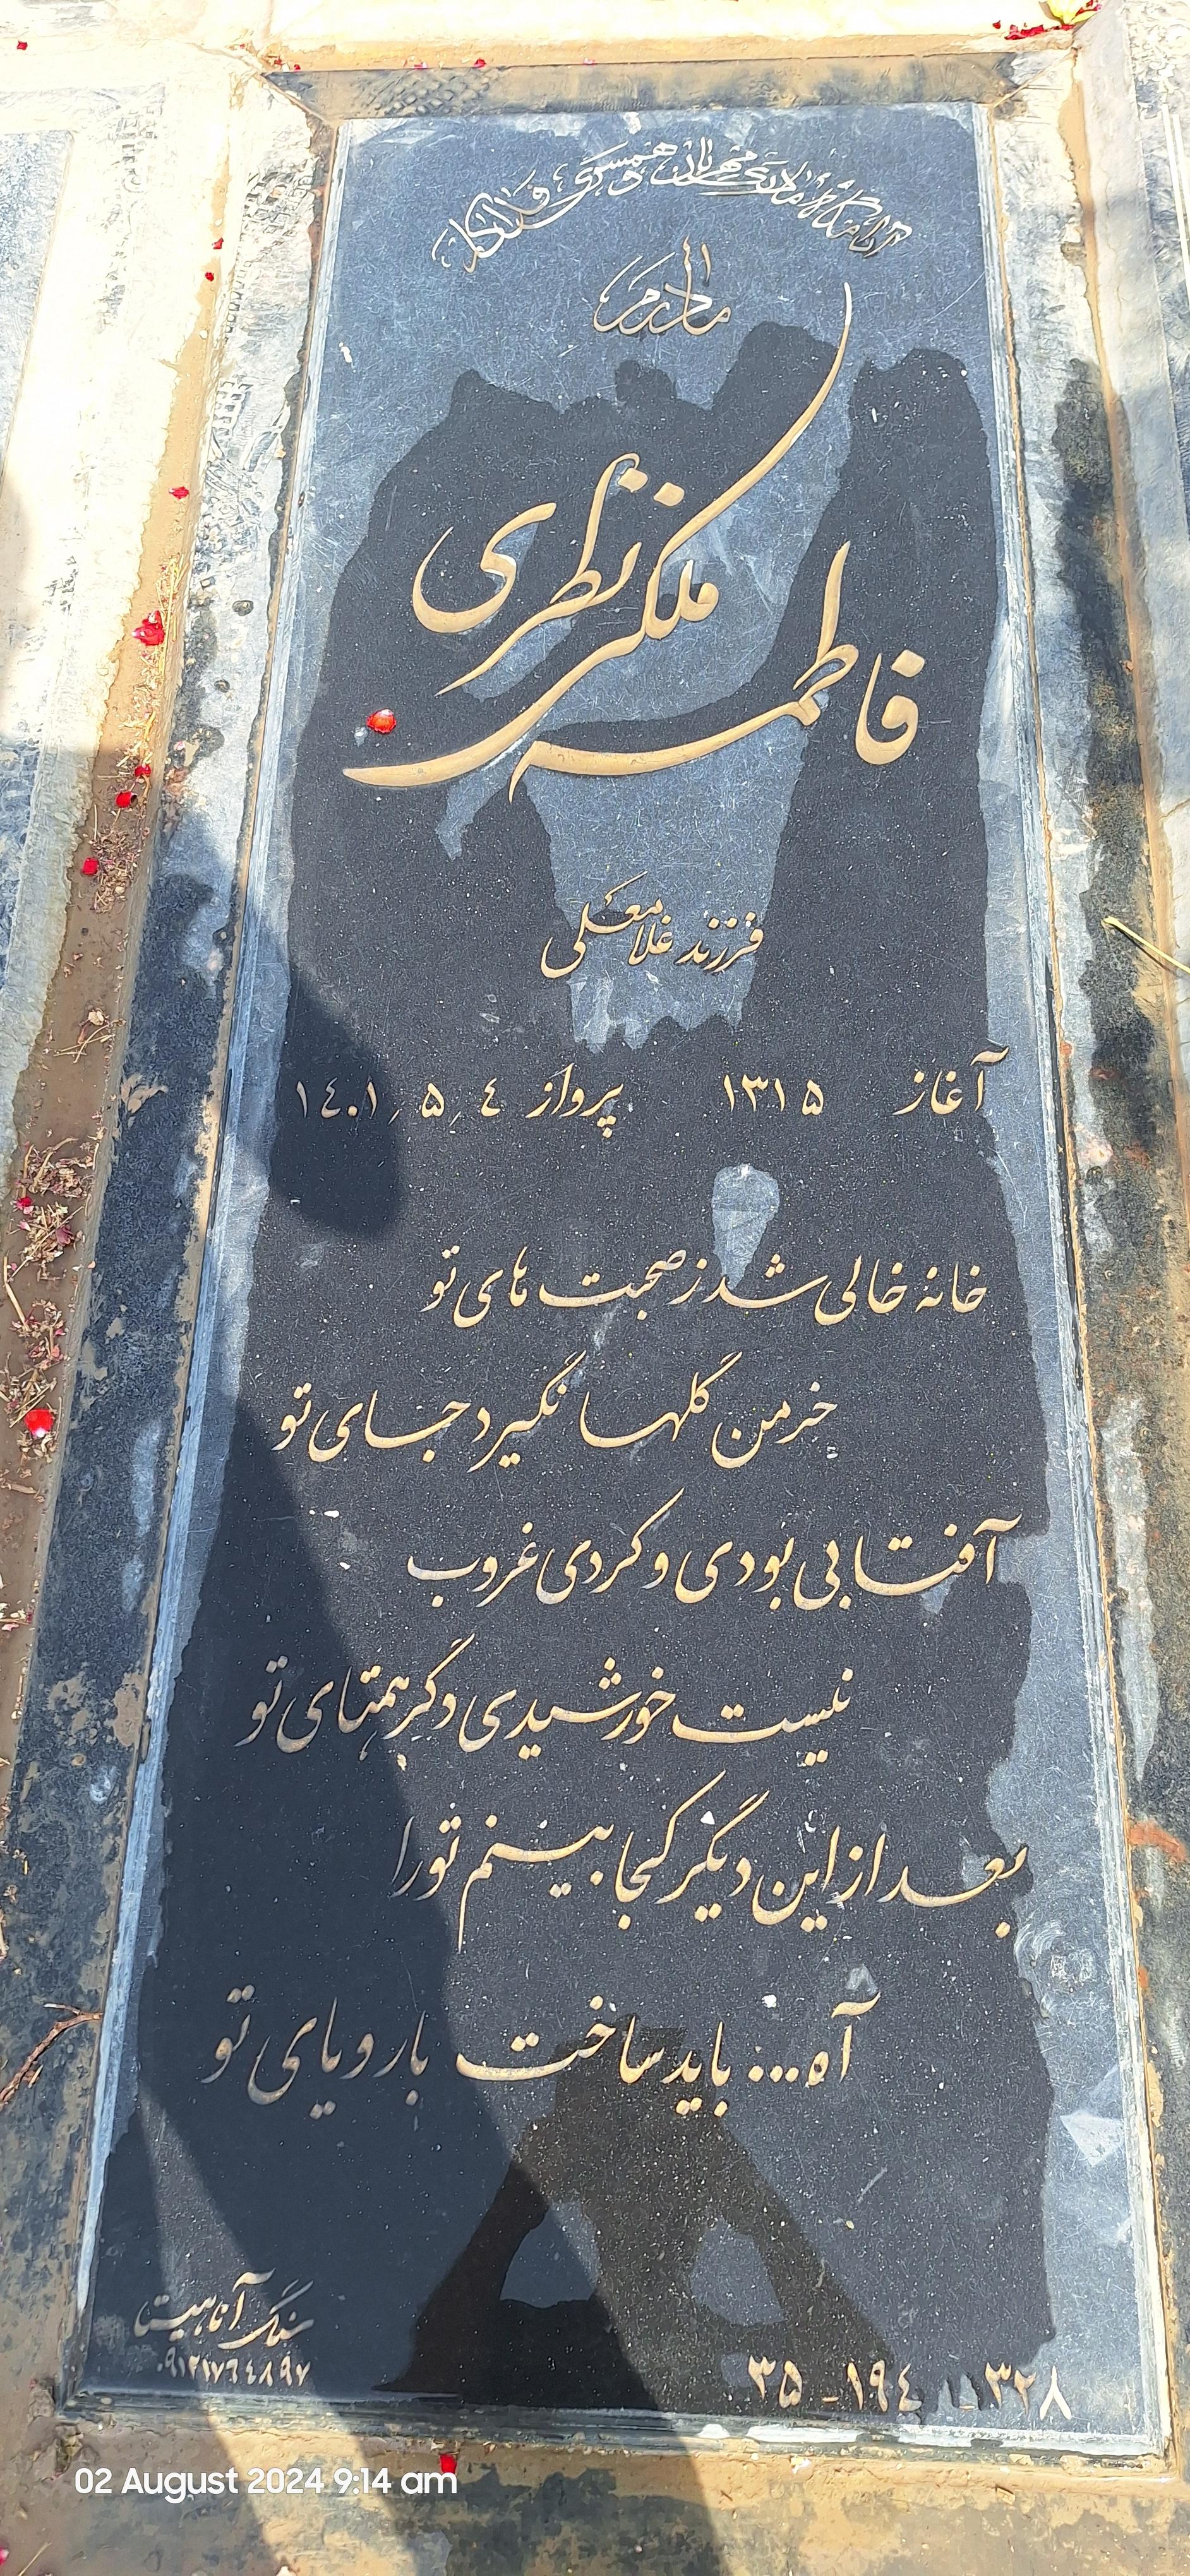 آرامگاه مادری مهربان و همسری فداکار
مادرم
فاطمه ملکی نظری
فرزند غلامعلی
آغاز ۱۳۱۵ پرواز ٤ / ۵ / ۱٤۰۱
خانه خالی شد ز صحبت های تو
خرمن گلها نگیرد جای تو
آفتابی بودی و کردی غروب
نیست خورشیدی دگر همتای تو
بعد از این دیگر کجا بینم تو را
آه... باید ساخت با رویای تو
سنگ آناهیتا
۰۹۱۲۱۷۶٤۸۹۷
۳۲۸ - ۱۹٤ - ۳۵
02 August 2024 9:14 am